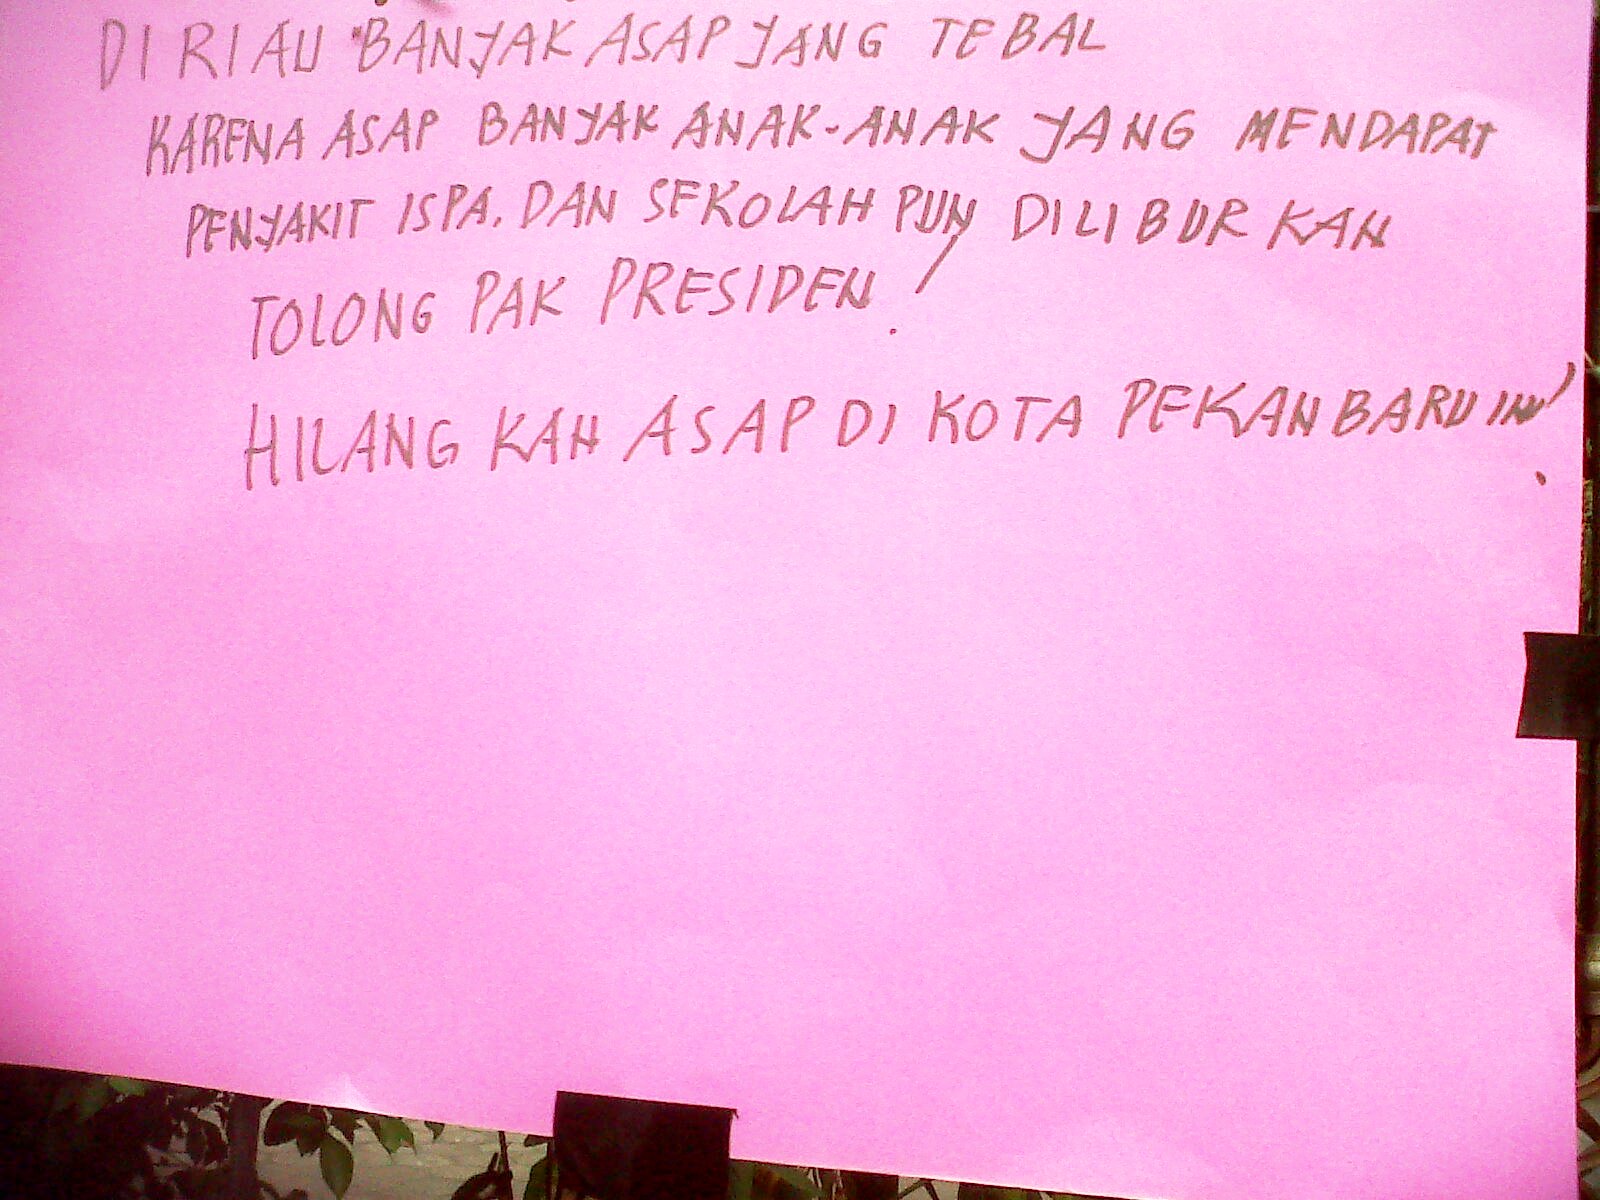 DI RIAU BANYAK ASAP YANG TEBAL
KARENA ASAP BANYAK ANAK-ANAK YANG MENDAPAT
PENYAKIT ISPA, DAN SEKOLAH PUN DILIBURKAN
TOLONG PAK PRESIDEN !
HILANG KAN ASAP DI KOTA PEKANBARU INI !